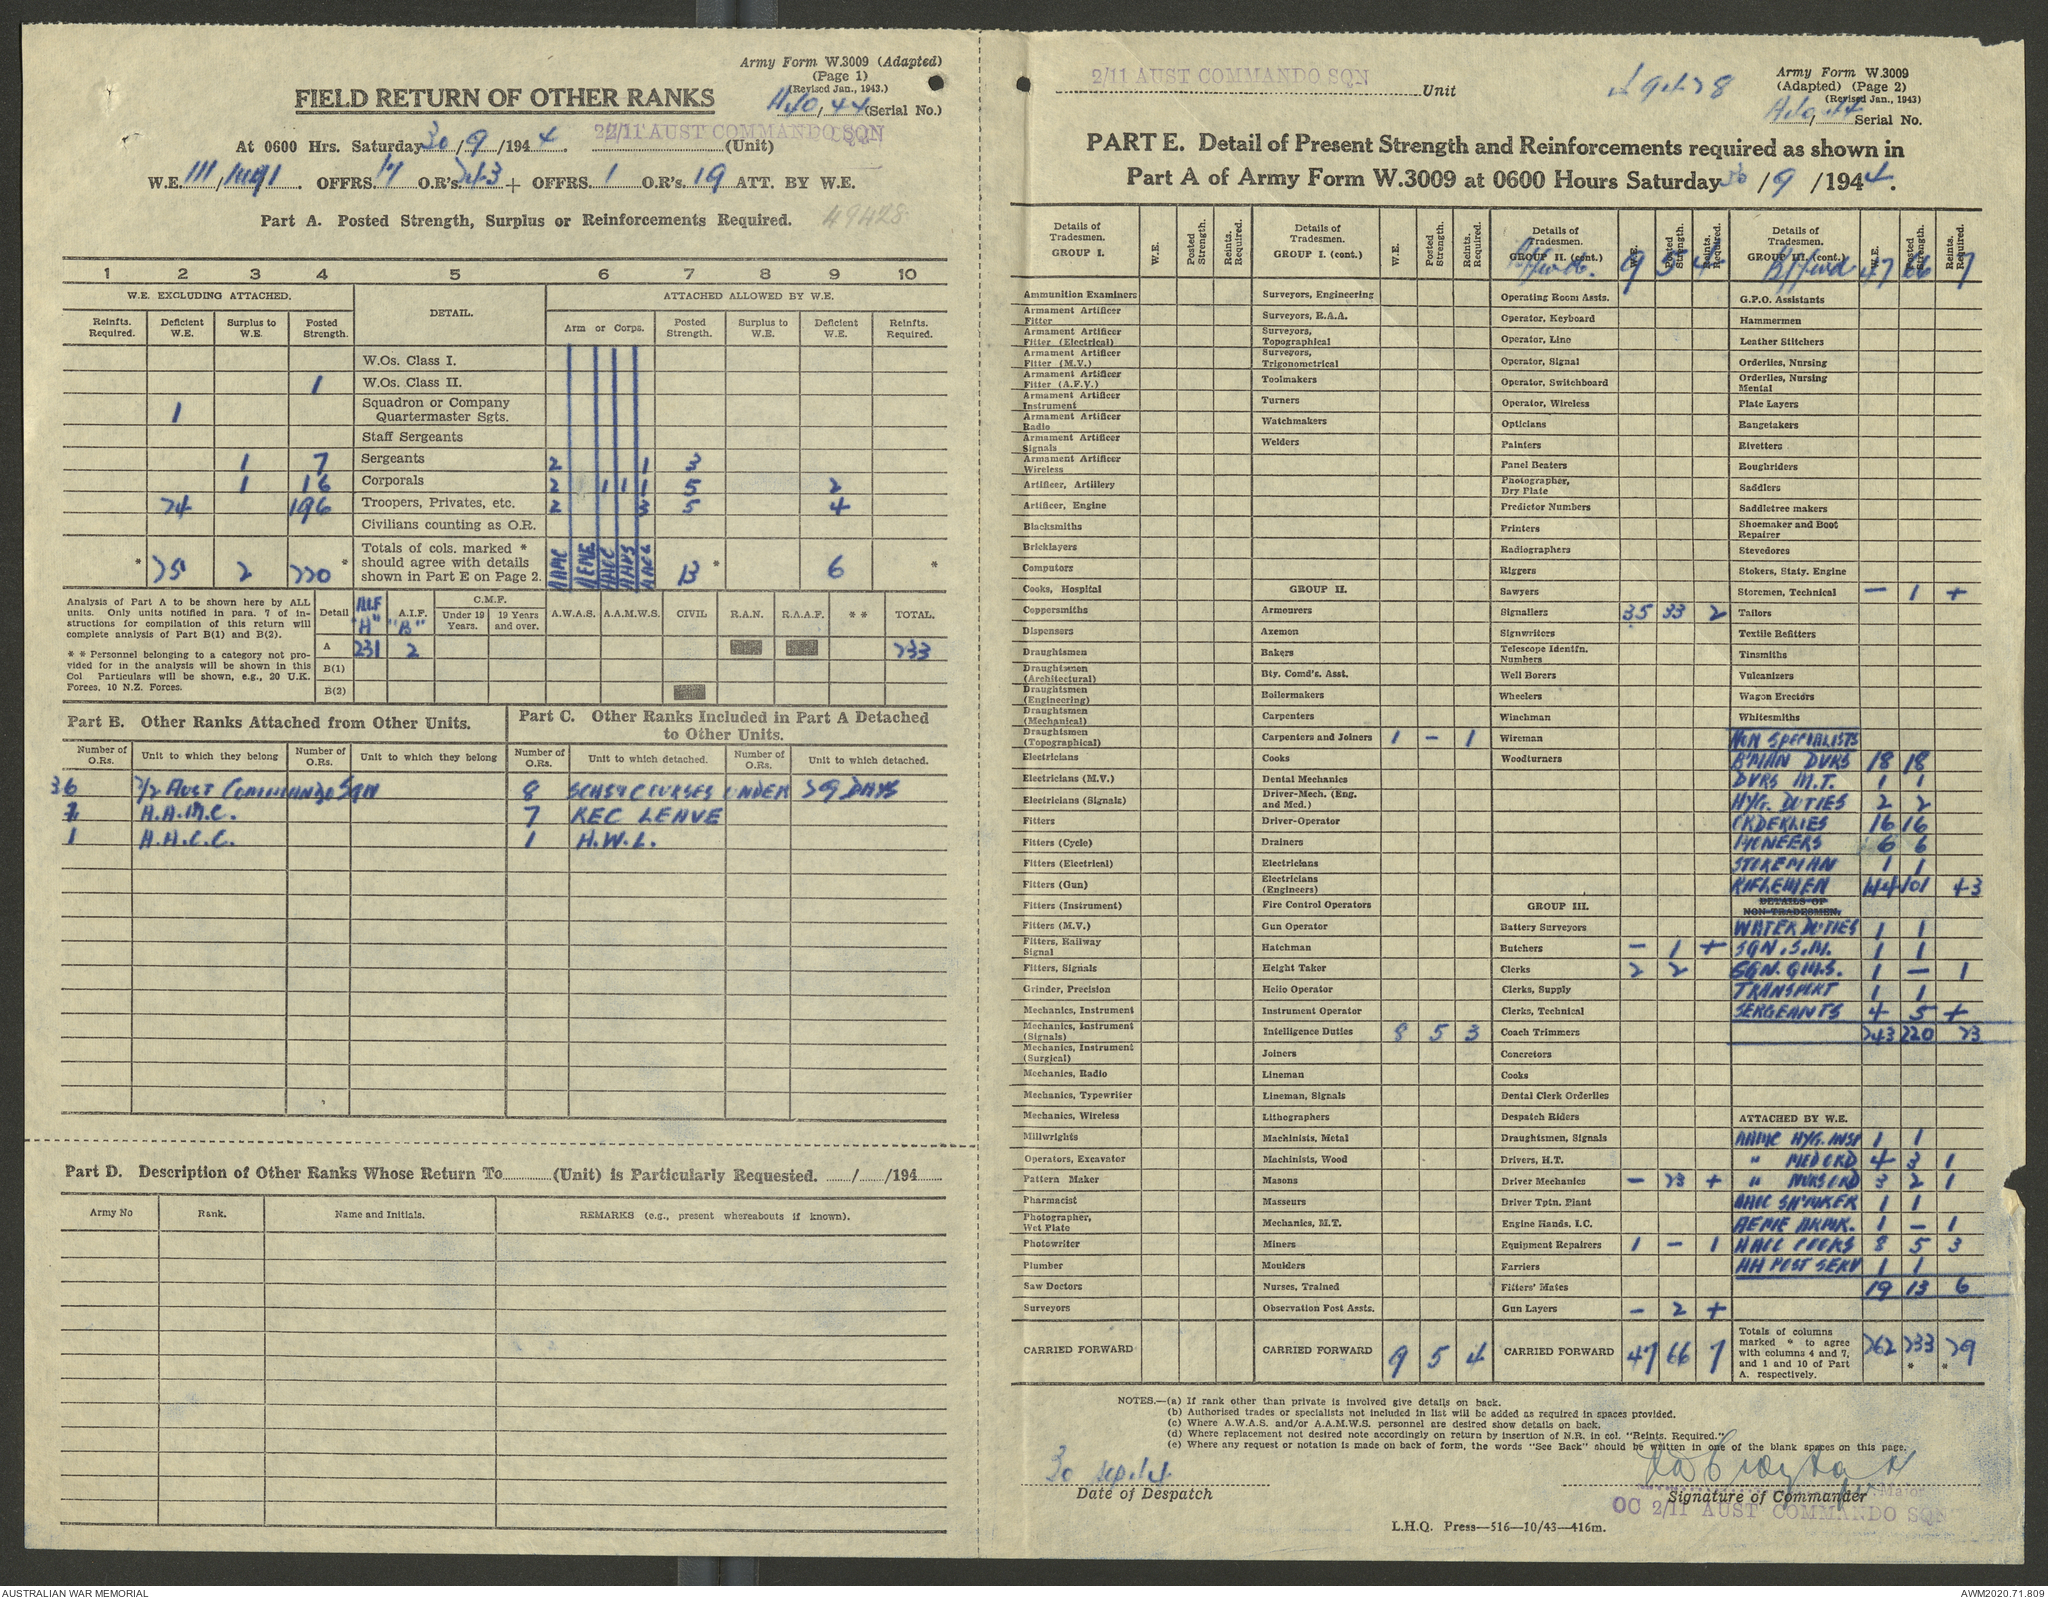 Army Form W.3009 (Adapted)
(Page 1)
(Revised Jan., 1943.)
FIELD RETURN OF OTHER RANKS
44 (Serial No.)
At 0600 Hrs. Saturday 30/9/1944. 2/11 AUST COMMANDO SQN (Unit)
W.E. 111/ OFFRS. 17 O.R's. 243 + OFFRS. 1 O.R's. 19 ATT. BY W.E.
Part A. Posted Strength, Surplus or Reinforcements Required. 49428
1 2 3 4 5 6 7 8 9 10
W.E. EXCLUDING ATTACHED. DETAIL. ATTACHED ALLOWED BY W.E.
Reinfts. Required. Deficient W.E. Surplus to W.E. Posted Strength. Arm or Corps. Posted Strength. Surplus to W.E. Deficient W.E. Reinfts. Required.
W.Os. Class I.
1 W.Os. Class II.
1 Squadron or Company Quartermaster Sgts.
Staff Sergeants
1 7 Sergeants 2 1 3
1 16 Corporals 2 1 1 1 5 2
24 196 Troopers, Privates, etc. 2 3 5 4
Civilians counting as O.R.
* 25 2 220 * Totals of cols. marked * should agree with details shown in Part E on Page 2. AAMC AEME AACC AAPS 13 * 6 *
Analysis of Part A to be shown here by ALL units. Only units notified in para. 7 of instructions for compilation of this return will complete analysis of Part B(1) and B(2).
* * Personnel belonging to a category not provided for in the analysis will be shown in this Col Particulars will be shown, e.g., 20 U.K. Forces, 10 N.Z. Forces.
Detail A.I.F. "A" A.I.F. "B" C.M.F. Under 19 Years. 19 Years and over. A.W.A.S. A.A.M.W.S. CIVIL R.A.N. R.A.A.F. * * TOTAL.
A 231 2 233
B(1)
B(2)
Part B. Other Ranks Attached from Other Units.
Part C. Other Ranks Included in Part A Detached to Other Units.
Number of O.Rs. Unit to which they belong Number of O.Rs. Unit to which they belong Number of O.Rs. Unit to which detached. Number of O.Rs. Unit to which detached.
36 2/2 AUST COMMANDO SQN 8 SCHS & COURSES UNDER 29 DAYS
A.A.M.C. 7 REC LEAVE
1 A.A.C.C. 1 A.W.L.
Part D. Description of Other Ranks Whose Return To (Unit) is Particularly Requested. / /194
Army No Rank. Name and Initials. REMARKS (e.g., present whereabouts if known).
2/11 AUST COMMANDO SQN Unit
49428
Army Form W.3009
(Adapted) (Page 2)
(Revised Jan., 1943)
44 Serial No.
PART E. Detail of Present Strength and Reinforcements required as shown in
Part A of Army Form W.3009 at 0600 Hours Saturday 30/9/1944.
Details of Tradesmen. GROUP I. W.E. Posted Strength. Reints. Required.
Ammunition Examiners
Armament Artificer Fitter
Armament Artificer Fitter (Electrical)
Armament Artificer Fitter (M.V.)
Armament Artificer Fitter (A.F.V.)
Armament Artificer Instrument
Armament Artificer Radio
Armament Artificer Signals
Armament Artificer Wireless
Artificer, Artillery
Artificer, Engine
Blacksmiths
Bricklayers
Computors
Cooks, Hospital
Coppersmiths
Dispensers
Draughtsmen
Draughtsmen (Architectural)
Draughtsmen (Engineering)
Draughtsmen (Mechanical)
Draughtsmen (Topographical)
Electricians
Electricians (M.V.)
Electricians (Signals)
Fitters
Fitters (Cycle)
Fitters (Electrical)
Fitters (Gun)
Fitters (Instrument)
Fitters (M.V.)
Fitters, Railway Signal
Fitters, Signals
Grinder, Precision
Mechanics, Instrument
Mechanics, Instrument (Signals)
Mechanics, Instrument (Surgical)
Mechanics, Radio
Mechanics, Typewriter
Mechanics, Wireless
Millwrights
Operators, Excavator
Pattern Maker
Pharmacist
Photographer, Wet Plate
Photowriter
Plumber
Saw Doctors
Surveyors
CARRIED FORWARD
Details of Tradesmen. GROUP I. (cont.) W.E. Posted Strength. Reints. Required.
Surveyors, Engineering
Surveyors, R.A.A.
Surveyors, Topographical
Surveyors, Trigonometrical
Toolmakers
Turners
Watchmakers
Welders
GROUP II.
Armourers
Axemen
Bakers
Bty. Comd's. Asst.
Boilermakers
Carpenters
Carpenters and Joiners 1 - 1
Cooks
Dental Mechanics
Driver-Mech. (Eng. and Med.)
Driver-Operator
Drainers
Electricians
Electricians (Engineers)
Fire Control Operators
Gun Operator
Hatchman
Height Taker
Helio Operator
Instrument Operator
Intelligence Duties 8 5 3
Joiners
Lineman
Lineman, Signals
Lithographers
Machinists, Metal
Machinists, Wood
Masons
Masseurs
Mechanics, M.T.
Miners
Moulders
Nurses, Trained
Observation Post Assts.
CARRIED FORWARD 9 5 4
Details of Tradesmen. GROUP II. (cont.) W.E. Posted Strength. Reints. Required.
B/fwd. 9 5 4
Operating Room Assts.
Operator, Keyboard
Operator, Line
Operator, Signal
Operator, Switchboard
Operator, Wireless
Opticians
Painters
Panel Beaters
Photographer, Dry Plate
Predictor Numbers
Printers
Radiographers
Riggers
Sawyers
Signallers 35 33 2
Signwriters
Telescope Identfn. Numbers
Well Borers
Wheelers
Winchman
Wireman
Woodturners
GROUP III.
Battery Surveyors
Butchers - 1 +
Clerks 2 2
Clerks, Supply
Clerks, Technical
Coach Trimmers
Concretors
Cooks
Dental Clerk Orderlies
Despatch Riders
Draughtsmen, Signals
Drivers, H.T.
Driver Mechanics - 23 +
Driver Tptn. Plant
Engine Hands, I.C.
Equipment Repairers 1 - 1
Farriers
Fitters' Mates
Gun Layers - 2 +
CARRIED FORWARD 47 66 7
Details of Tradesmen. GROUP III. (cont.) W.E. Posted Strength. Reints. Required.
B/fwd 47 66 7
G.P.O. Assistants
Hammermen
Leather Stitchers
Orderlies, Nursing
Orderlies, Nursing Mental
Plate Layers
Rangetakers
Rivetters
Roughriders
Saddlers
Saddletree makers
Shoemaker and Boot Repairer
Stevedores
Stokers, Staty. Engine
Storemen, Technical - 1 +
Tailors
Textile Refitters
Tinsmiths
Vulcanizers
Wagon Erectors
Whitesmiths
NON SPECIALISTS
B'MAN DVRS 18 18
DVRS M.T. 1 1
HYG. DUTIES 2 2
ORDERLIES 16 16
PIONEERS 6 6
STOREMAN 1 1
RIFLEMEN 144 101 43
DETAILS OF NON-TRADESMEN.
WATER DUTIES 1 1
SQN. S.M. 1 1
SQN. QMS. 1 - 1
TRANSPORT 1 1
SERGEANTS 4 5 +
243 220 23
ATTACHED BY W.E.
AAMC HYG. INSP 1 1
" MED ORD 4 3 1
" NURS ORD 3 2 1
AAOC SH'MAKER 1 1
AEME ARMR. 1 - 1
AACC COOKS 8 5 3
AA POST SERV 1 1
19 13 6
Totals of columns marked * to agree with columns 4 and 7, and 1 and 10 of Part A. respectively. 262 233 * * 29
NOTES.—(a) If rank other than private is involved give details on back.
(b) Authorised trades or specialists not included in list will be added as required in spaces provided.
(c) Where A.W.A.S. and/or A.A.M.W.S. personnel are desired show details on back.
(d) Where replacement not desired note accordingly on return by insertion of N.R. in col. "Reints. Required."
(e) Where any request or notation is made on back of form, the words "See Back" should be written in one of the blank spaces on this page.
30 Sep 44
Date of Despatch
Signature of Commander
Major
OC 2/11 AUST COMMANDO SQN
L.H.Q. Press—516—10/43—416m.
AUSTRALIAN WAR MEMORIAL
AWM2020.71.809